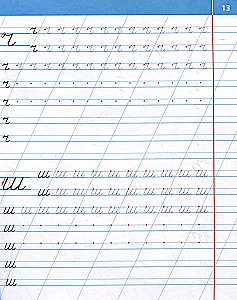 13
ч ч ч ч ч ч ч ч ч ч ч ч
ч
ч ч ч ч ч ч ч ч ч ч ч ч
ч ч ч ч ч ч ч ч ч ч ч ч ч ч
ч
ч
ч
ч
ш ш ш ш ш ш ш ш ш ш
ш
ш ш ш ш ш ш ш ш ш ш
ш ш ш ш ш ш ш ш ш ш ш ш
ш
ш
ш
ш